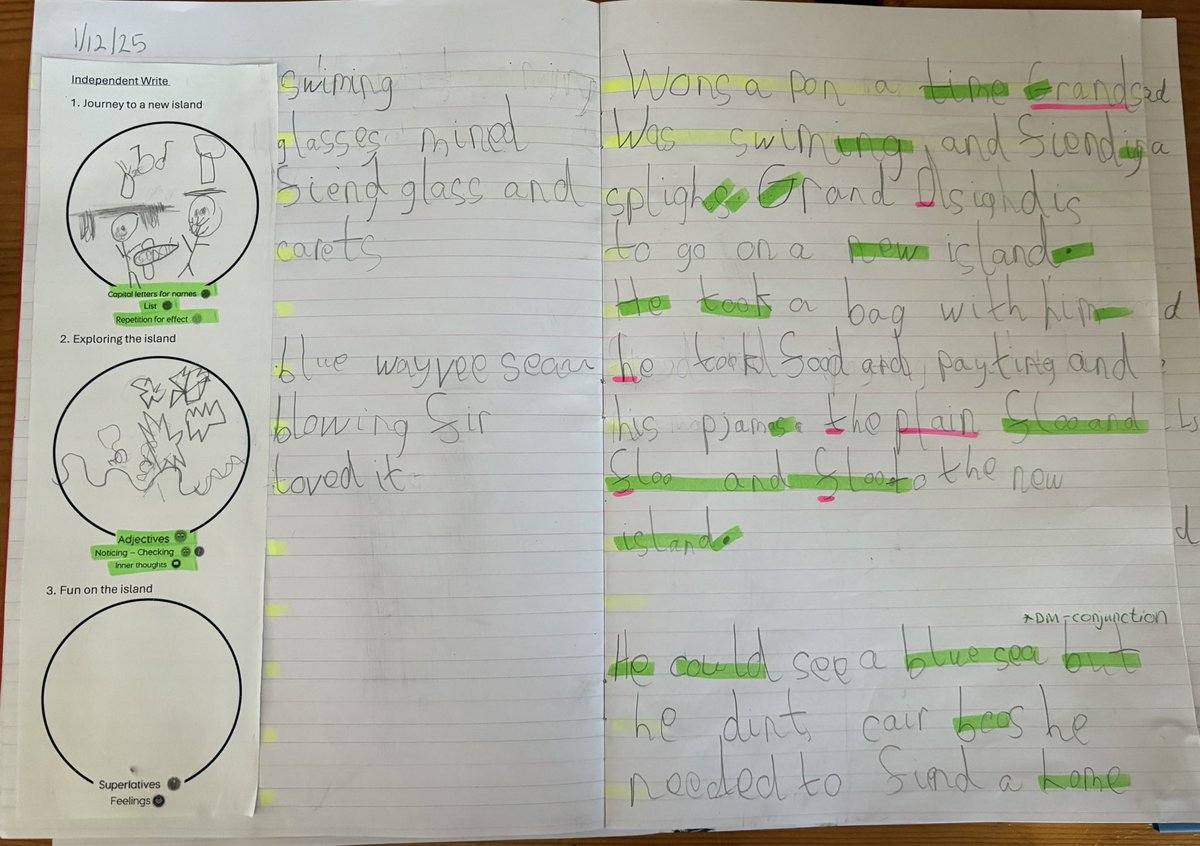 1/12/25
Independent Write
1. Journey to a new island
Capital letters for names
List
Repetition for effect
2. Exploring the island
Adjectives
Noticing – Checking
Inner thoughts
3. Fun on the island
Superlatives
Feelings
swiming
glasses mined
fiend glass and
carets
blue wayvee sea
blowing fir
loved it
Wons a pon a time Grands
Was swiming and fiending a
splighs. Grand Dsighdis
to go on a new island.
He took a bag with him
he took food and, payting and
his pjamas the plain floo and
floo and floo to the new
island.
*DM-conjunction
He could see a blue sea but
he dint cair becos he
needed to find a home